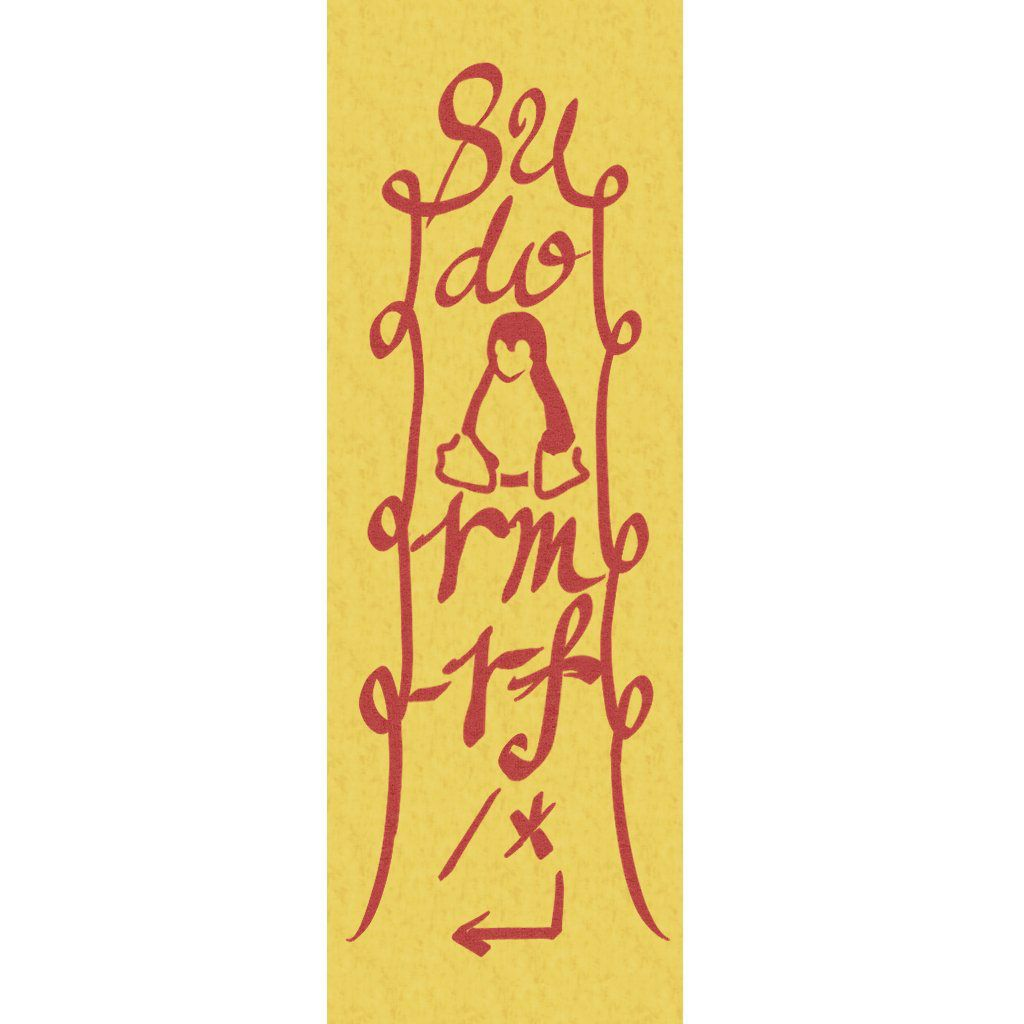 su
do
rm
-rf
/*